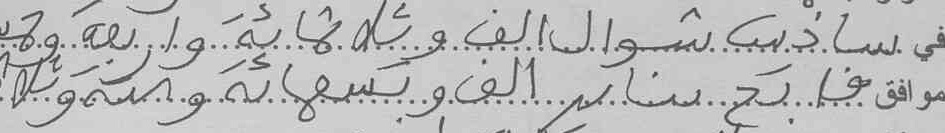 في سادس شوال الف وثلاثمائة واربعة
موافق فاتح يناير الف وتسعمائة وستة